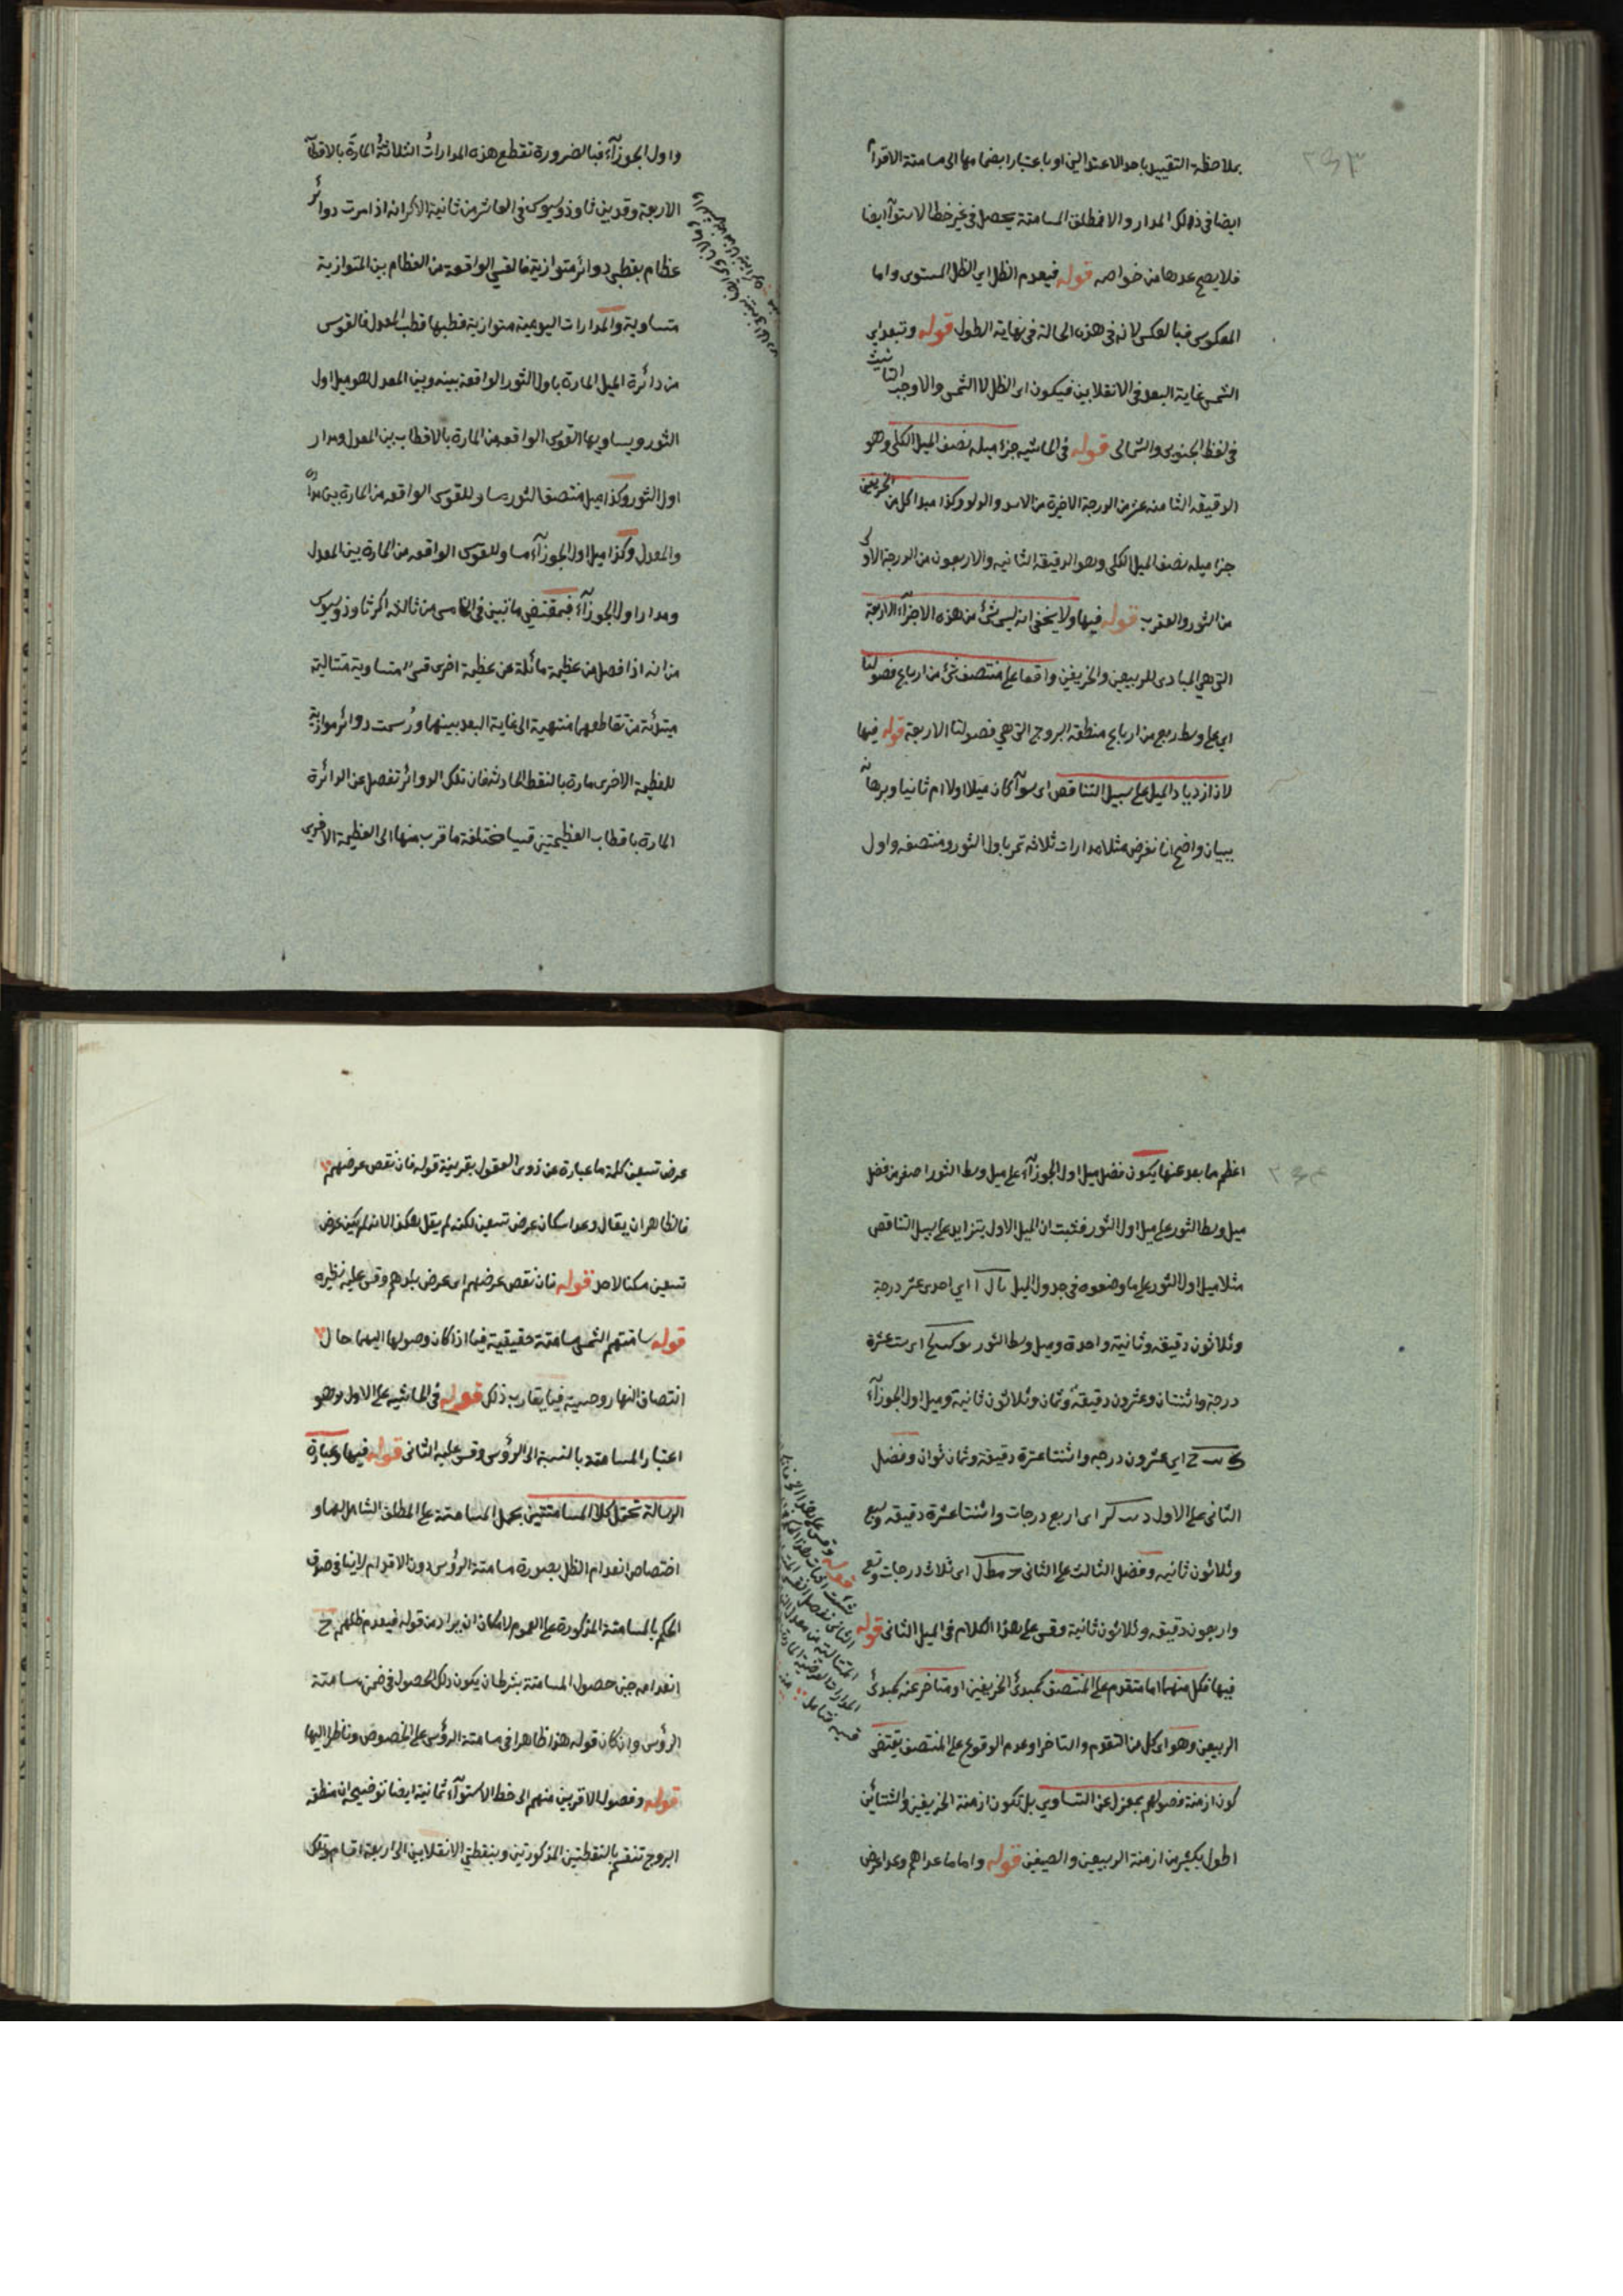 بملاحظة التقييد باحد الاعتدالين او باعتبار ايضا مها الى مسامتة الاقدام
ايضا فى ذلك المدار والا فمطلق المسامتة يحصل فى غير خط الاستوآ ايضا
فلا يصح عدها من خواصه قوله فيعدم الظل اى الظل المستوى واما
المعكوس فبالعكس لانه فى هذه الحالة فى نهاية الطول قوله وتبعد اى
الشمس غاية البعد فى الانقلابين فيكون اى الظل لا الشمس والا وجب التانيث
فى لفظ الجنوبى والشمالى قوله فى الحاشيه جزء ميله نصف الميل الكلى وهو
الدقيقه الثامنه عشر من الدرجة الاخيرة من الاسد والدلو وكذا مبدا كل من الخريفين
جزء ميله نصف الميل الكلى وهو الدقيقة الثانيه والاربعون من الدرجة الاولى
من الثور والعقرب قوله فيها ولا يخفى انه ليس شئ من هذه الاجزآء الاربعة
التى هى المبادى للربيعين والخريفين واقعا على منتصف شئ من ارباع فصولنا
اى على وسط ربع من ارباع منطقة البروج التى هى فصولنا الاربعة قوله فيها
لان ازدياد الميل على سبيل التناقص اى سوآء كان ميلا اولا ام ثانيا وبرهانه
ببيان واضح انا نفرض مثلا مدارات ثلاثه تمر باول الثور ومنتصفه واول
واول الجوزآء فبالضرورة تقطع هذه المدارات الثلاثة المارة بالاقطاب
الاربعة وقد بين ثاوذوسيوس فى العاشر من ثانية الاكر انه اذا مرت دوائر
عظام بقطبى دوائر متوازية فالقسى الواقعة من العظام بين المتوازية
متساوية والمدارات اليومية متوازية قطبها قطب المعدل فالقوس
من دائرة الميل المارة باول الثور الواقعة بينه وبين المعدل هو ميل اول
الثور ويساويها القوس الواقعه من المارة بالاقطاب بين المعدل ومدار
اول الثور وكذا ميل منتصف الثور مساو للقوس الواقعه من المارة بين مداره
والمعدل وكذا ميل اول الجوزآء مساو للقوس الواقعه من المارة بين المعدل
ومدار اول الجوزآء فبمقتضى ما تبين فى الخامس من ثالثة اكر ثاوذوسيوس
من انه اذا فصل من عظيمة مائلة عن عظيمة اخرى قسى متساوية متتالية
مبتدئة من تقاطعهما منتهية الى غاية البعد بينهما ورسمت دوائر موازية
للعظيمة الاخرى مارة بالنقط الحادثه فان تلك الدوائر تفصل عن الدائرة
المارة باقطاب العظيمتين قسيا مختلفة ما قرب منها الى العظيمة الاخرى
اعظم مما بعد عنها يكون فضل ميل اول الجوزآء على ميل وسط الثور اصغر من فضل
ميل وسط الثور على ميل اول الثور فثبت ان الميل الاول يتزايد على سبيل التناقص
مثلا ميل اول الثور على ما وضعوه فى جدول الميل يا ل ا اى احدى عشر درجة
وثلاثون دقيقه وثانية واحدة وميل وسط الثور يو كب لح اى ست عشرة
درجة واثنتان وعشرون دقيقة وثمان وثلاثون ثانية وميل اول الجوزآء
ك يب ح اى عشرون درجه واثنتا عشرة دقيقة وثمان ثوان وفضل
الثانى على الاول د يب لز اى اربع درجات واثنتا عشرة دقيقه وسبع
وثلاثون ثانيه وفضل الثالث على الثانى ج مط ل اى ثلاث درجات وتسع
واربعون دقيقه وثلاثون ثانية وقس على هذا الكلام فى الميل الثانى قوله
فيها فكل منهما اما متقدم على المنتصف كمبدئ الخريفين او متاخر عنه كمبدئ
الربيعين وهو اى كل من التقدم والتاخر او عدم الوقوع على المنتصف يقتضى
كون ازمنة فصولهم بمعزل عن التساوى بل تكون ازمنة الخريفين والشتائين
اطول بكثير من ازمنة الربيعين والصيفين قوله واما ما عداهم وعدا عرض
عرض تسعين كلمة ما عبارة عن ذوى العقول بقرينة قوله فان نقص عرضهم
فالظاهر ان يقال وعدا سكان عرض تسعين لكنه لم يقل هكذا لانه لم يكن عرض
تسعين مسكنا لاحد قوله فان نقص عرضهم اى عرض بلدهم وقس عليه نظيره
قوله سامتهم الشمس مسامتة حقيقية فيما اذا كان وصولها اليهما حال
انتصاف النهار وحسية فيما يقارب ذلك قوله فى الحاشيه على الاول وهو
اعتبار المسامتة بالنسبة الى الرؤس وقس عليه الثانى قوله فيها وعبارة
الرسالة تحتمل كلا المسامتتين بحمل المسامتة على المطلق الشامل لهما و
اختصاص انعدام الظل بصورة مسامتة الرؤس دون الاقدام لا ينافى صدق
الحكم بالمسامتة المذكورة على العموم لامكان ان يراد من قوله فيعدم ظلهم ح
انعدامه حين حصول المسامتة بشرط ان يكون ذلك الحصول فى ضمن مسامتة
الرؤس وان كان قوله هذا ظاهرا فى مسامتة الرؤس على الخصوص وناظرا اليها
قوله وفصول الاقربين منهم الى خط الاستوآء ثمانية ايضا توضيحه ان منطقة
البروج تنقسم بالنقطتين المذكورتين وبنقطتى الانقلابين الى اربعة اقسام وتلك